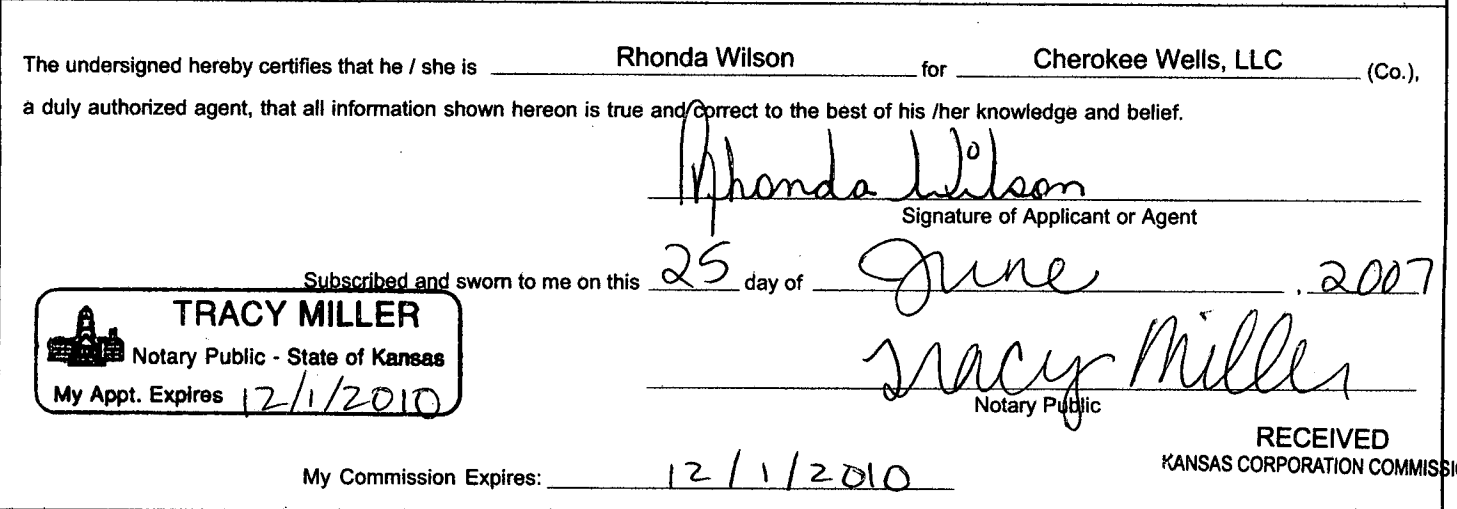 The undersigned hereby certifies that he / she is Rhonda Wilson for Cherokee Wells, LLC (Co.),
a duly authorized agent, that all information shown hereon is true and correct to the best of his /her knowledge and belief.
Rhonda Wilson
Signature of Applicant or Agent
Subscribed and sworn to me on this 25 day of June , 2007
TRACY MILLER
Notary Public - State of Kansas
My Appt. Expires 12/1/2010
Tracy Miller
Notary Public
RECEIVED
KANSAS CORPORATION COMMISSI
My Commission Expires: 12/1/2010